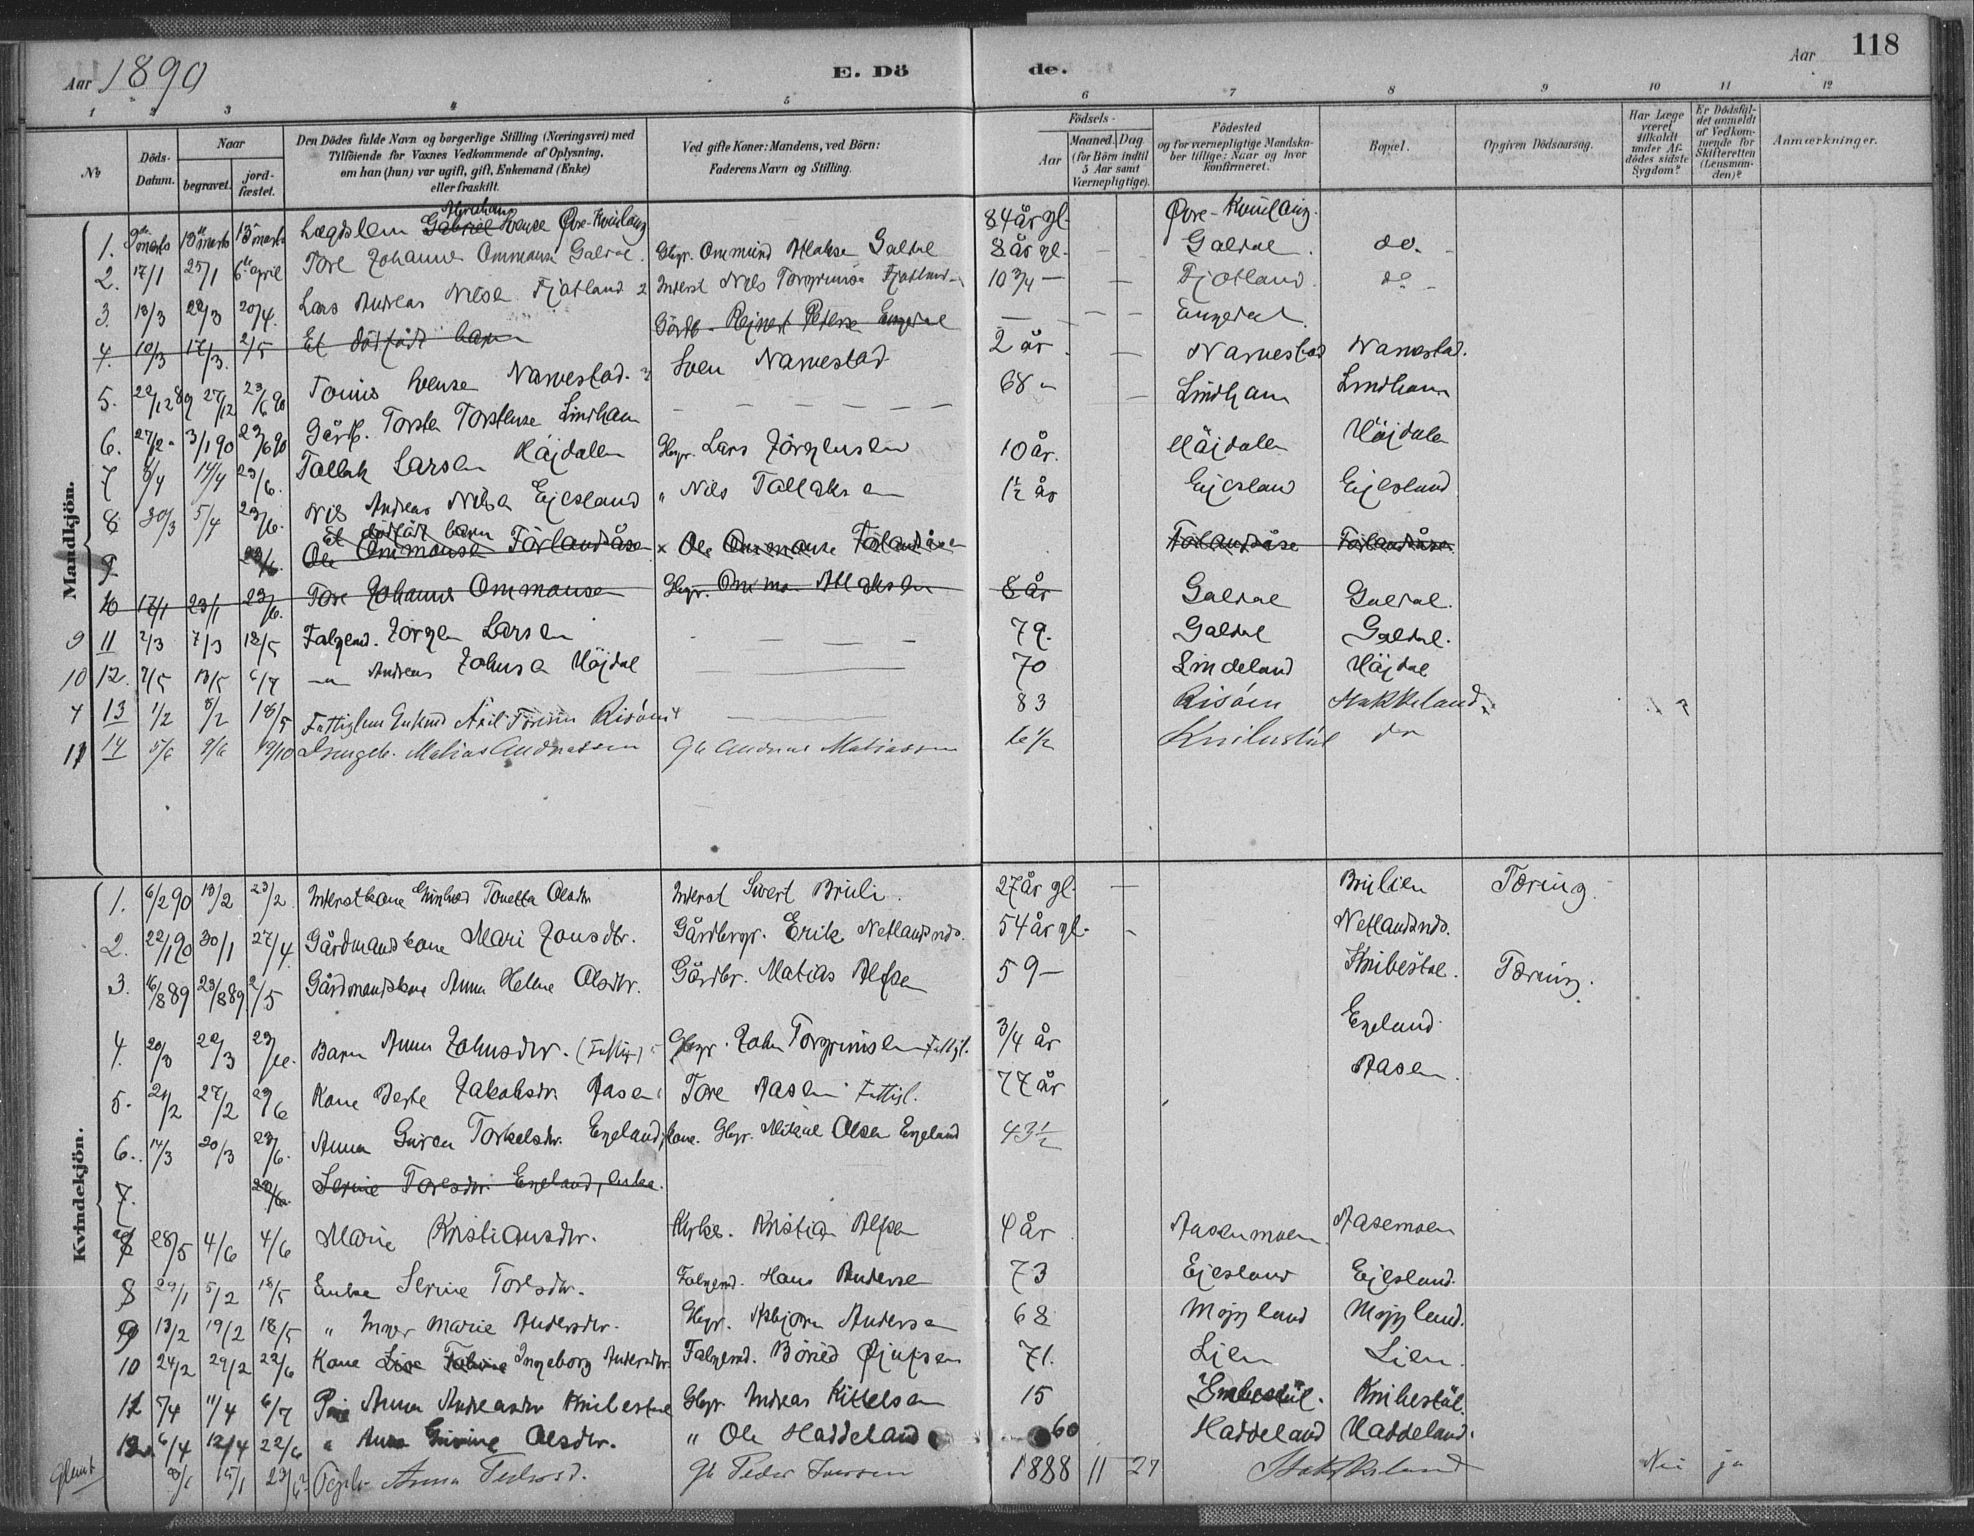 Aar 1890 E. Döde. Aar 118
1 2 3 4 5 6 7 8 9 10 11 12
№ Döds-Datum. Naar begravet. jord-fæstet. Den Dödes fulde Navn og borgerlige Stilling (Næringsvei) med Tilföiende for Voxnes Vedkommende af Oplysning, om han (hun) var ugift, gift, Enkemand (Enke) eller fraskilt. Ved gifte Koner: Mandens, ved Börn: Faderens Navn og Stilling. Födsels- Aar Maaned. Dag (for Börn indtil 5 Aar samt Værnepligtige). Födested og for værnepligtige Mandskaber tillige: Naar og hvor konfirmeret. Bopæl. Opgiven Dödsaarsag. Har Læge været tilkaldt under Afdödes sidste Sygdom? Er Dödsfaldet anmeldt af Vedkommende for Skifteretten (Lensmanden)? Anmærkninger.
Mandkjön.
1. 9de marts 13de marts 13de marts Lægdslem Gabriel Abraham Svense Øvre-Kvinlaug 84 år gl. Øvre-Kvinlaug.
2. 17/1 25/1 6te april Tore Johannes Ommunse Galdal. Gbgr. Ommund Atlakse Galdal 8 år gl. - Galdal do. -
3. 13/3 22/3 20/4. Lars Andreas Nilse Fjotland Inderst Nils Torgrimse Fjotland 10 3/4 — Fjotland do -
4. 10/3 17/3. 2/5 Et dödfödt barn Gårdb. Reinert Peterse Engedal — Engedal
5. 22/12 89 27/12 23/6 90 Tonnes Svense Narvestad. Sven Narvestad 2 år. Narvestad Narvestad.
6. 27/2 3/1 90 23/6 90 Gårdb. Torsten Torstense Lindham — 68 Lindham Lindham
7 8/4 14/4 23/6. Tallak Larsen Höjdalen Gbgr. Lars Jörgensen 10 år. Höjdalen Höjdalen
8 30/3 5/4 23/6. Nils Andreas Nilsen Eiesland " Nils Tallaksen 1½ år Eiesland Eiesland
9 23/6. Et dödfödt barn Ole Ommunse Förlandsåse x Ole Ommunse Förlandsåse Förlandsåse Förlandsåsen
10 17/1 23/1 23/6. Tore Johannes Ommonsen Gbgr. Ommun Atlaksen 8 år Galdal Galdal.
9 11 2/3 7/3 18/5 Falgemd. Jörgen Larsen — 79. Galdal Galdal.
10 12. 7/5 13/5 6/7 —"— Andreas Johnsen Höjdal — 70 Lindeland Höjdal
13 1/2 8/2 18/5 Fattiglem Enkemd Risöen — 83 Risöen Stakkeland
11 14 5/6 9/6 19/10 Ungk. Matias Andreassen Gb Andreas Matiassen 16½ Knibestöl do
Kvindekjön.
1. 6/2 90 13/2 23/2 Inderstkone Gunhild Tonetta Olsdtr Inderst Sivert Brüli. 27 år gl. — Brylien Tæring.
2. 22/1 90 30/1 27/4. Gårdmandskone Mari Jonsdtr. Gårdbrgr. Erik Netlandsnds. 54 år gl. - Netlandsnds.
3. 16/8 89 23/8 89. 2/5 Gårdmandskone Anna Helene Olsdtr. Gårdbr. Matias Alfsen 59 — Knibestöl. Tæring.
4. 20/3 22/3 23/6. Barn Anna Johnsdtr. (Fattig) Gbgr. John Torgrimsen Fattigl. 3/4 år Egeland
5. 21/2 27/2 29/6 Kone Berte Jakobsdtr. Aasen Tore Aasen Fattigl. 77 år Aasen.
6. 14/3 20/3 23/6. Anna Guren Torkelsdtr. Egeland, kone. Gbgr. Mikal Olsen Egeland 43½
7. 23/6. Serine Toresdtr. Egeland, enke.
7 28/5 4/6 4/6 Marie Kristiansdtr. Kirkes. Kristian Alfsen 4 år Aasenmoen. Aasemoen
8 29/1 5/2 18/5 Enke Serine Toresdtr. Falgemd. Hans Andersen 73 Eiesland Eiesland.
9 13/2 19/2 18/5 " Inger Marie Andersdtr. Gbgr. Asbjörn Andersen 68 Mojgland Mojgland.
10 24/2 29/2 22/6 Kone Lise Ingeborg Andersdtr. Falgemd. Böried Ojufsen 71. Lien Lien.
11 5/4 11/4 6/7 Pige Anna Andreasdtr Knibestöl Gbgr. Andreas Kittelsen 15 Knibestöl. Knibestöl.
12 6/4 12/4 22/6 " Anna Gurine Olsdtr. " Ole Haddeland 60 Haddeland Haddeland.
glemt 15/1 23/6 Anna Pedersd. Gb Peder Iversen 1888 11 27 Stakkeland Nei ja